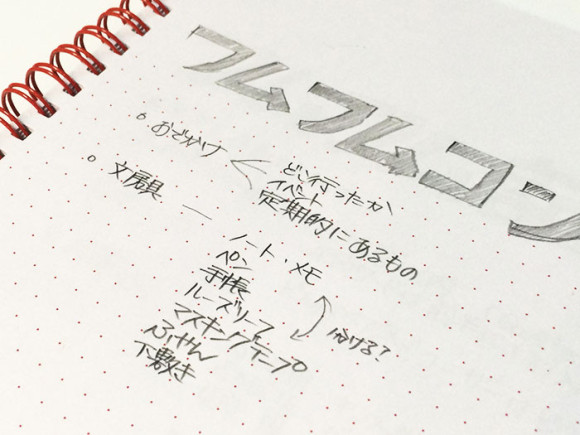 フムフムコン
○ おでかけ
どこ行ったか
イベント
定期的にあるもの
○ 文房具 ―
ノート・メモ
ペン
手帳
ルーズリーフ
マスキングテープ
ふせん
下敷き
分ける?